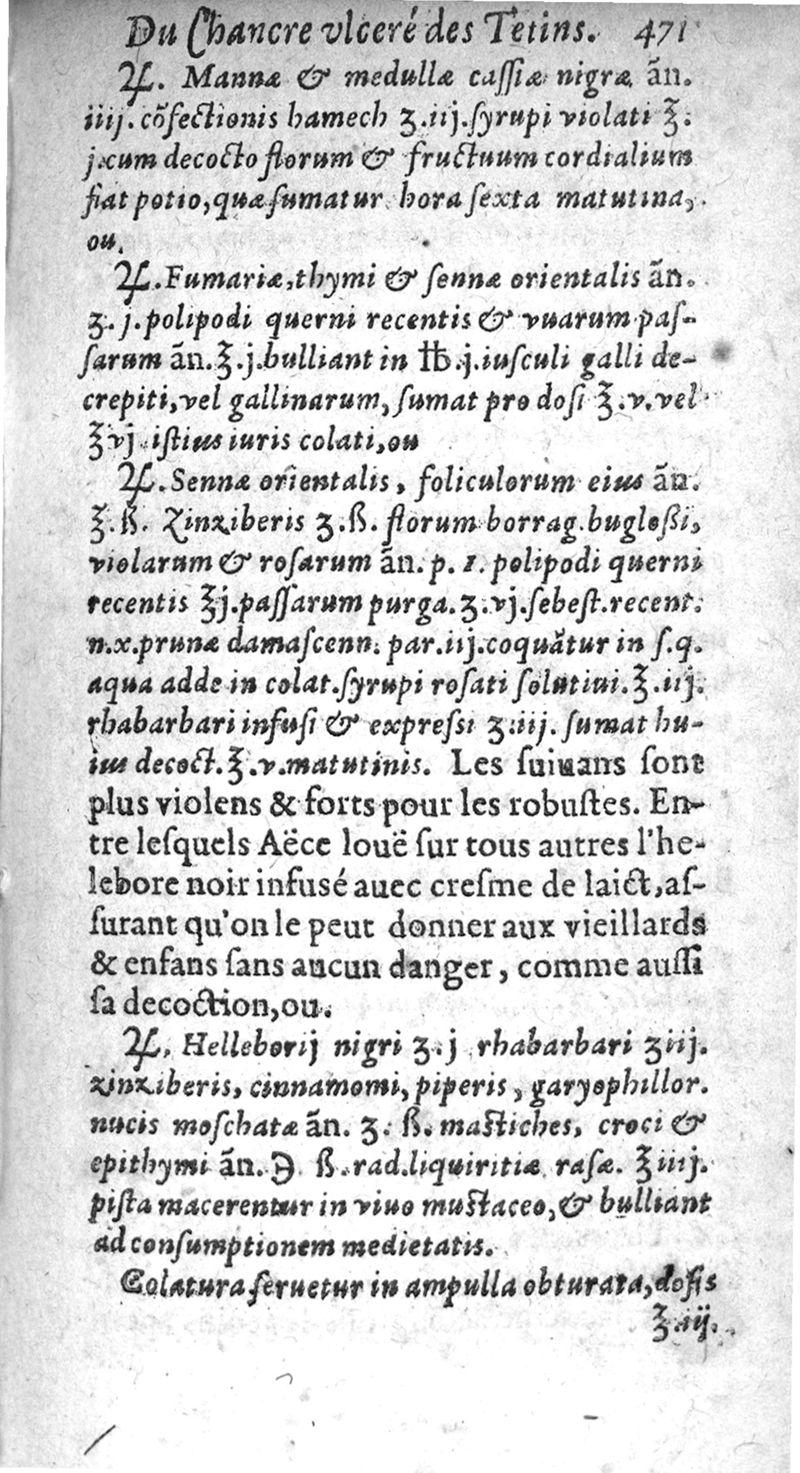 Du Chancre vlceré des Tetins. 471
℞. Mannæ & medullæ caſſiæ nigræ ãn.
iiij. cõfectionis hamech ʒ.iij.ſyrupi violati ℥.
j.cum decocto florum & fructuum cordialium
fiat potio,quæ ſumatur hora ſexta matutina,
ou,
℞.Fumariæ,thymi & ſennæ orientalis ãn.
ʒ.j.polipodi querni recentis & vuarum paſ-
ſarum ãn.℥.j.bulliant in ℔.j.iuſculi galli de-
crepiti,vel gallinarum,ſumat pro doſi ℥.v.vel
℥vj iſtius iuris colati,ou
℞.Sennæ orientalis, foliculorum eius ãn.
℥.ß. Zinziberis ʒ.ß. florum borrag.bugloſſi,
violarum & roſarum ãn. p. 1. polipodi querni
recentis ℥j.paſſarum purga.ʒ.vj.ſebeſt.recent.
n.x.prunæ damaſcenn. par.iij.coquãtur in ſ.q.
aqua adde in colat.ſyrupi roſati ſolutiui.℥.iij.
rhabarbari infuſi & expreſſi ʒ.iij. ſumat hu-
ius decoct.℥.v.matutinis. Les ſuiuans ſont
plus violens & forts pour les robuſtes. En-
tre leſquels Aëce louë ſur tous autres l'he-
lebore noir infuſé auec creſme de laict,aſ-
ſurant qu'on le peut donner aux vieillards
& enfans ſans aucun danger, comme auſſi
ſa decoction,ou.
℞. Helleborij nigri ʒ.j rhabarbari ʒiij.
zinziberis, cinnamomi, piperis, garyophillor.
nucis moſchatæ ãn. ʒ. ß. maſtiches, croci &
epithymi ãn. ℈ ß. rad.liquiritiæ raſæ. ℥iiij.
piſta macerentur in viuo muſtaceo, & bulliant
ad conſumptionem medietatis.
Colatura ſeruetur in ampulla obturata, doſis
℥.iij.